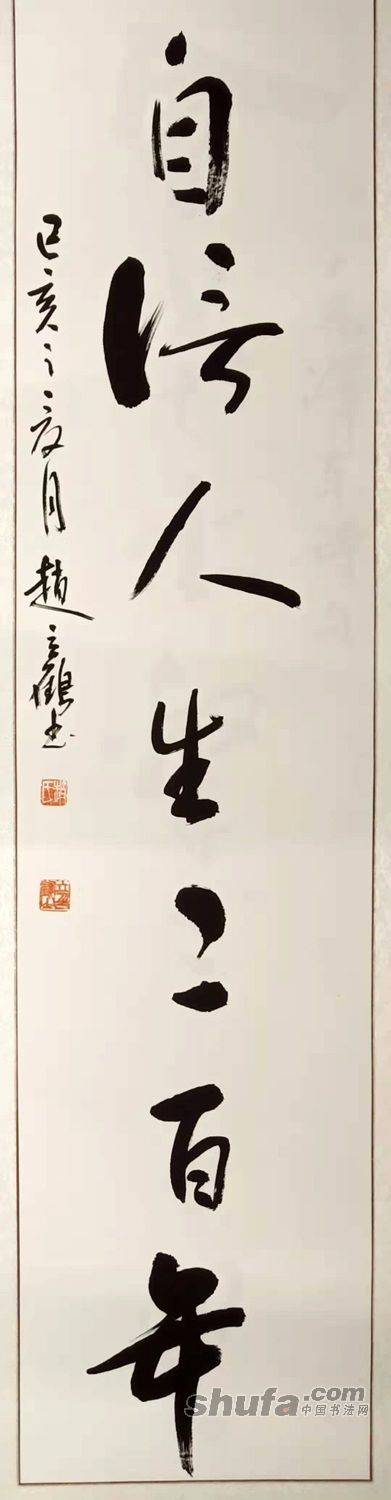 自信人生二百年
己亥之夏月趙立鶴书
shufa.com
中国书法网